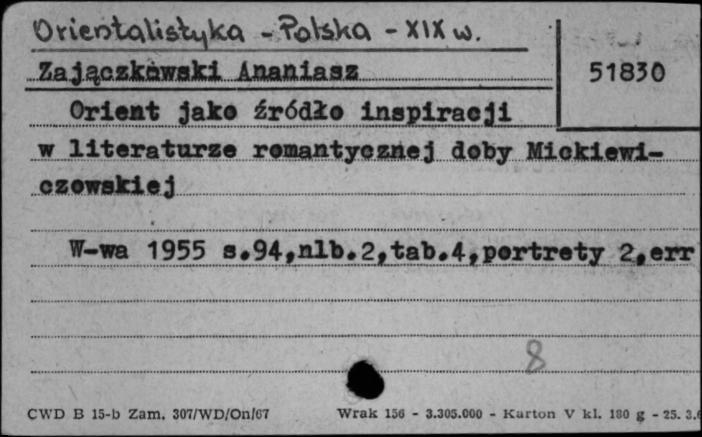 Orientalistyka - Polska - XIX w.
Zajączkowski Ananiasz
51830
Orient jako źródło inspiracji
w literaturze romantycznej doby Mickiewi-
czowskiej
W-wa 1955 s.94,nlb.2,tab.4,portrety 2,err
8
CWD B 15-b Zam. 307/WD/On/67
Wrak 156 - 3.305.000 - Karton V kl. 180 g - 25. 3.6